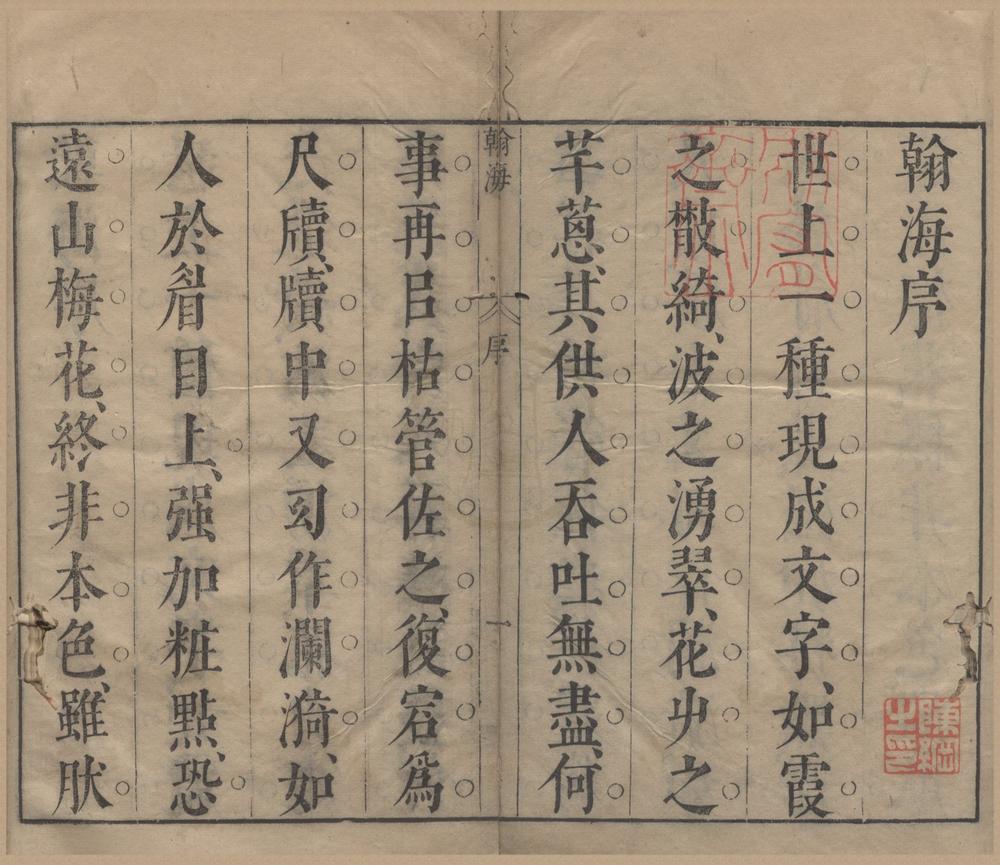 翰海序
世上一種現成文字、如霞
之散綺、波之湧翠、花屮之
芊蔥、其供人吞吐無盡、何
翰海
序
一
事再㠯枯管佐之、復宕爲
尺牘、牘中又幻作瀾漪、如
人於眉目上、强加粧點、恐
遠山梅花、終非本色、雖肰
陳綱之印